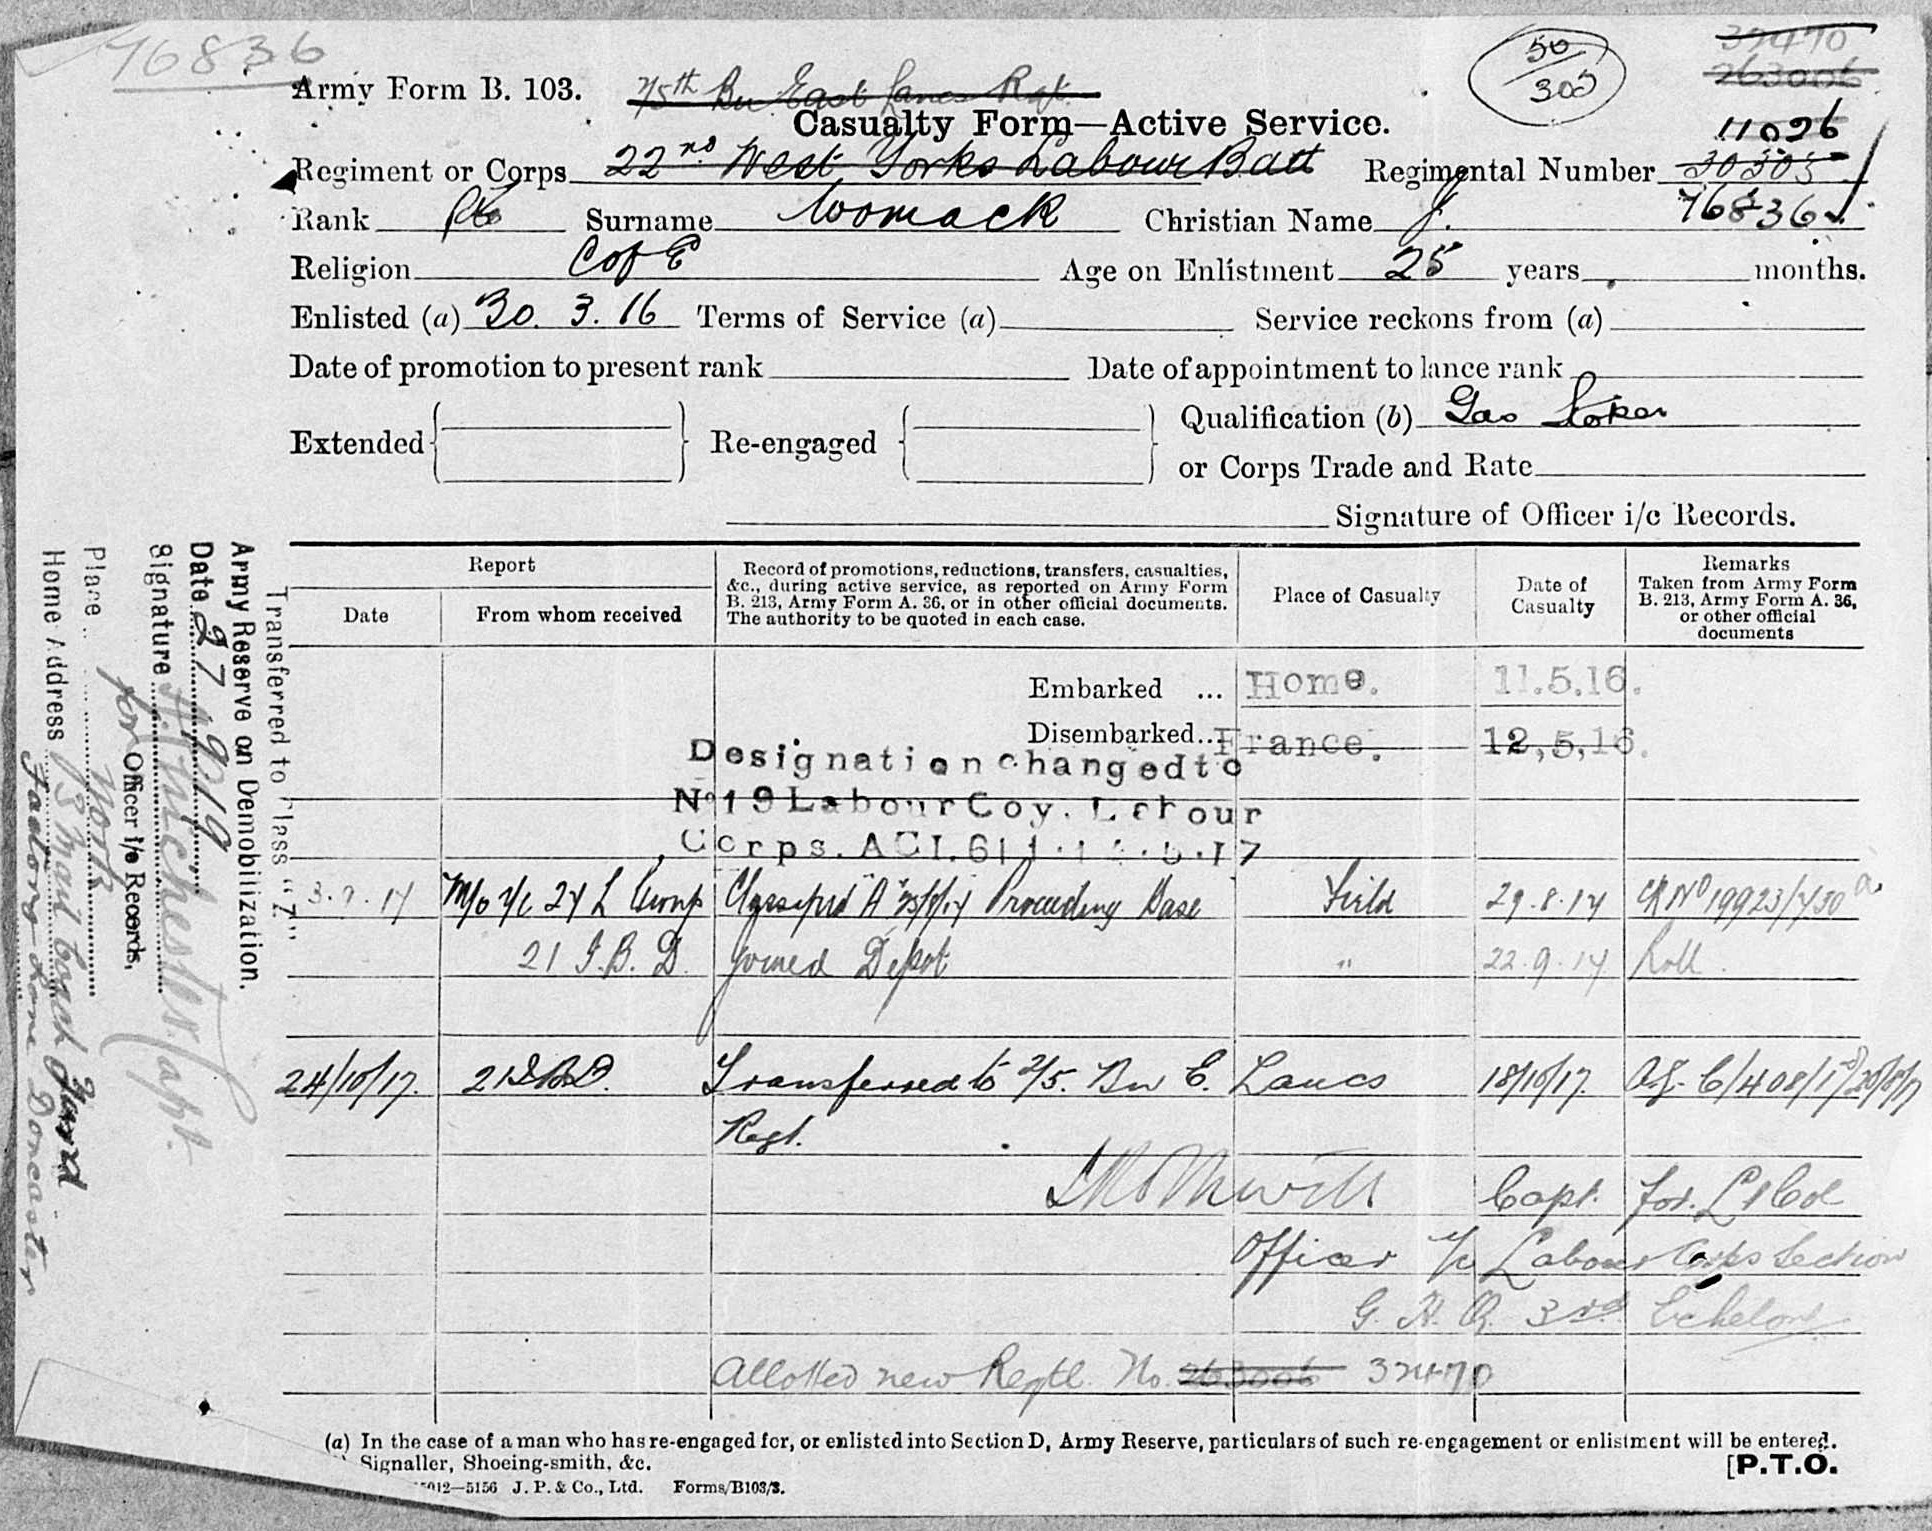 76836
50
300
32470
263006
Army Form B. 103.
2/5th Bn East Lancs Rgt.
Casualty Form—Active Service.
11026
Regiment or Corps 22nd West Yorks Labour Batt Regimental Number 30305
76836
Rank Pte Surname Womack Christian Name J.
Religion C of E Age on Enlistment 25 years months.
Enlisted (a) 30. 3. 16 Terms of Service (a) Service reckons from (a)
Date of promotion to present rank Date of appointment to lance rank
Extended Re-engaged Qualification (b) Gas Stoker
or Corps Trade and Rate
Signature of Officer i/c Records.
Report
Date From whom received
Record of promotions, reductions, transfers, casualties,
&c., during active service, as reported on Army Form
B. 213, Army Form A. 36, or in other official documents.
The authority to be quoted in each case.
Place of Casualty
Date of
Casualty
Remarks
Taken from Army Form
B. 213, Army Form A. 36,
or other official
documents
Embarked ... Home. 11.5.16.
Disembarked... France. 12.5.16.
Designation changed to
No 19 Labour Coy. Labour
Corps. ACI. 611
3.9.17 Classified "A" Proceeding Base Field 29.8.17 CR No 19923/
21 I.B.D. Joined Depot " 22.9.17 Roll.
24/10/17. 21 I.B.D. Transferred to 2/5. Bn E. Lancs 18/10/17.
Regt.
Capt. for. Lt Col
Officer i/c Labour Corps Section
G. H. Q. 3rd Echelon
Allotted new Regtl. No. 263006 32470
(a) In the case of a man who has re-engaged for, or enlisted into Section D, Army Reserve, particulars of such re-engagement or enlistment will be entered.
Signaller, Shoeing-smith, &c.
[P.T.O.
—5156 J. P. & Co., Ltd. Forms/B103/3.
Transferred to Class "Z"
Army Reserve on Demobilization.
Date 27 9/19
Signature Capt.
for Officer i/c Records,
Place York
Home Address 3 Yard
Factory Lane Doncaster